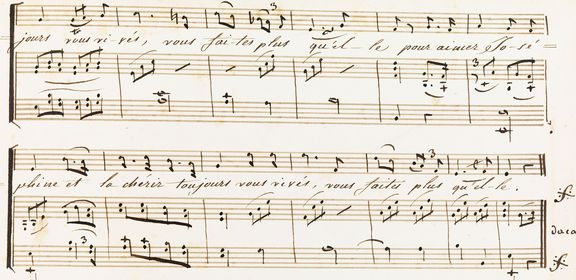 jours vous vi-vés, vous fai-tes plus qu'el-le pour aimer Jo-sé=
3
3
phine et la cherir toujours vous vivés, vous faites plus qu'el-le.
3
3